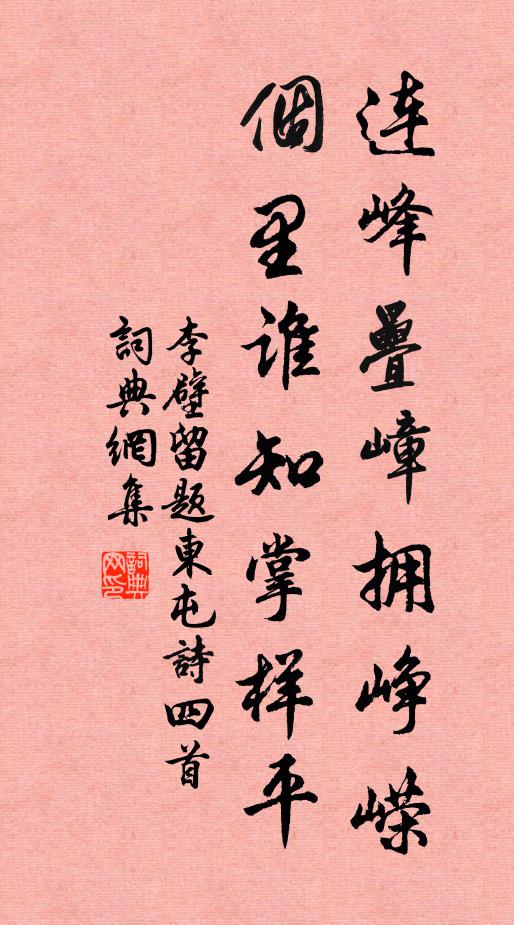 連峰疊嶂拥峥嶸
個里誰知掌样平
李壁留题東屯詩四首
詞典網集
詞典网印